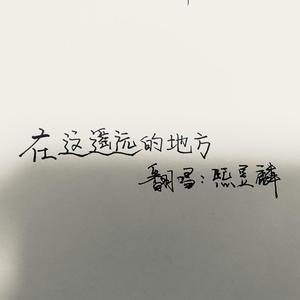 在这遥远的地方
翻唱：熙昱麟